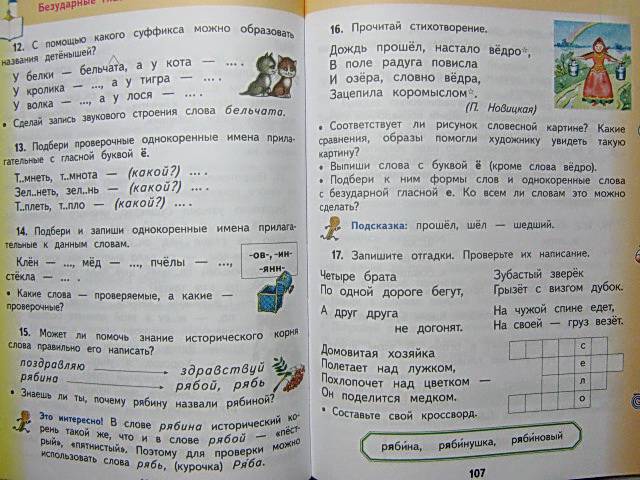 Безударные
12. С помощью какого суффикса можно образовать
названия детёнышей?
У белки — бельчата, а у кота — ... .
У кролика — ..., а у тигра — ... .
У волка — ..., а у лося — ... .
• Сделай запись звукового строения слова бельчата.
13. Подбери проверочные однокоренные имена прила-
гательные с гласной буквой ё.
Т..мнеть, т..мнота — (какой?) ... .
Зел..неть, зел..нь — (какой?) ... .
Т..плеть, т..пло — (какой?) ... .
14. Подбери и запиши однокоренные имена прилага-
тельные к данным словам.
Клён — ..., мёд — ..., пчёлы — ...,
стёкла — ... .
-ов-, -ин-
-янн-
• Какие слова — проверяемые, а какие —
проверочные?
15. Может ли помочь знание исторического корня
слова правильно его написать?
поздравляю здравствуй
рябина рябой, рябь
• Знаешь ли ты, почему рябину назвали рябиной?
Это интересно! В слове рябина исторический ко-
рень такой же, что и в слове рябой — «пёст-
рый», «пятнистый». Поэтому для проверки можно
использовать слова рябь, (курочка) Ряба.
16. Прочитай стихотворение.
Дождь прошёл, настало вёдро*,
В поле радуга повисла
И озёра, словно вёдра,
Зацепила коромыслом*.
(П. Новицкая)
• Соответствует ли рисунок словесной картине? Какие
сравнения, образы помогли художнику увидеть такую
картину?
• Выпиши слова с буквой ё (кроме слова вёдро).
• Подбери к ним формы слов и однокоренные слова
с безударной гласной е. Ко всем ли словам это можно
сделать?
Подсказка: прошёл, шёл — шедший.
17. Запишите отгадки. Проверьте их написание.
Четыре брата
По одной дороге бегут,
А друг друга
не догонят.
Зубастый зверёк
Грызёт с визгом дубок.
На чужой спине едет,
На своей — груз везёт.
Домовитая хозяйка
Полетает над лужком,
Похлопочет над цветком —
Он поделится медком.
с
е
л
о
• Составьте свой кроссворд.
рябина, рябинушка, рябиновый
107